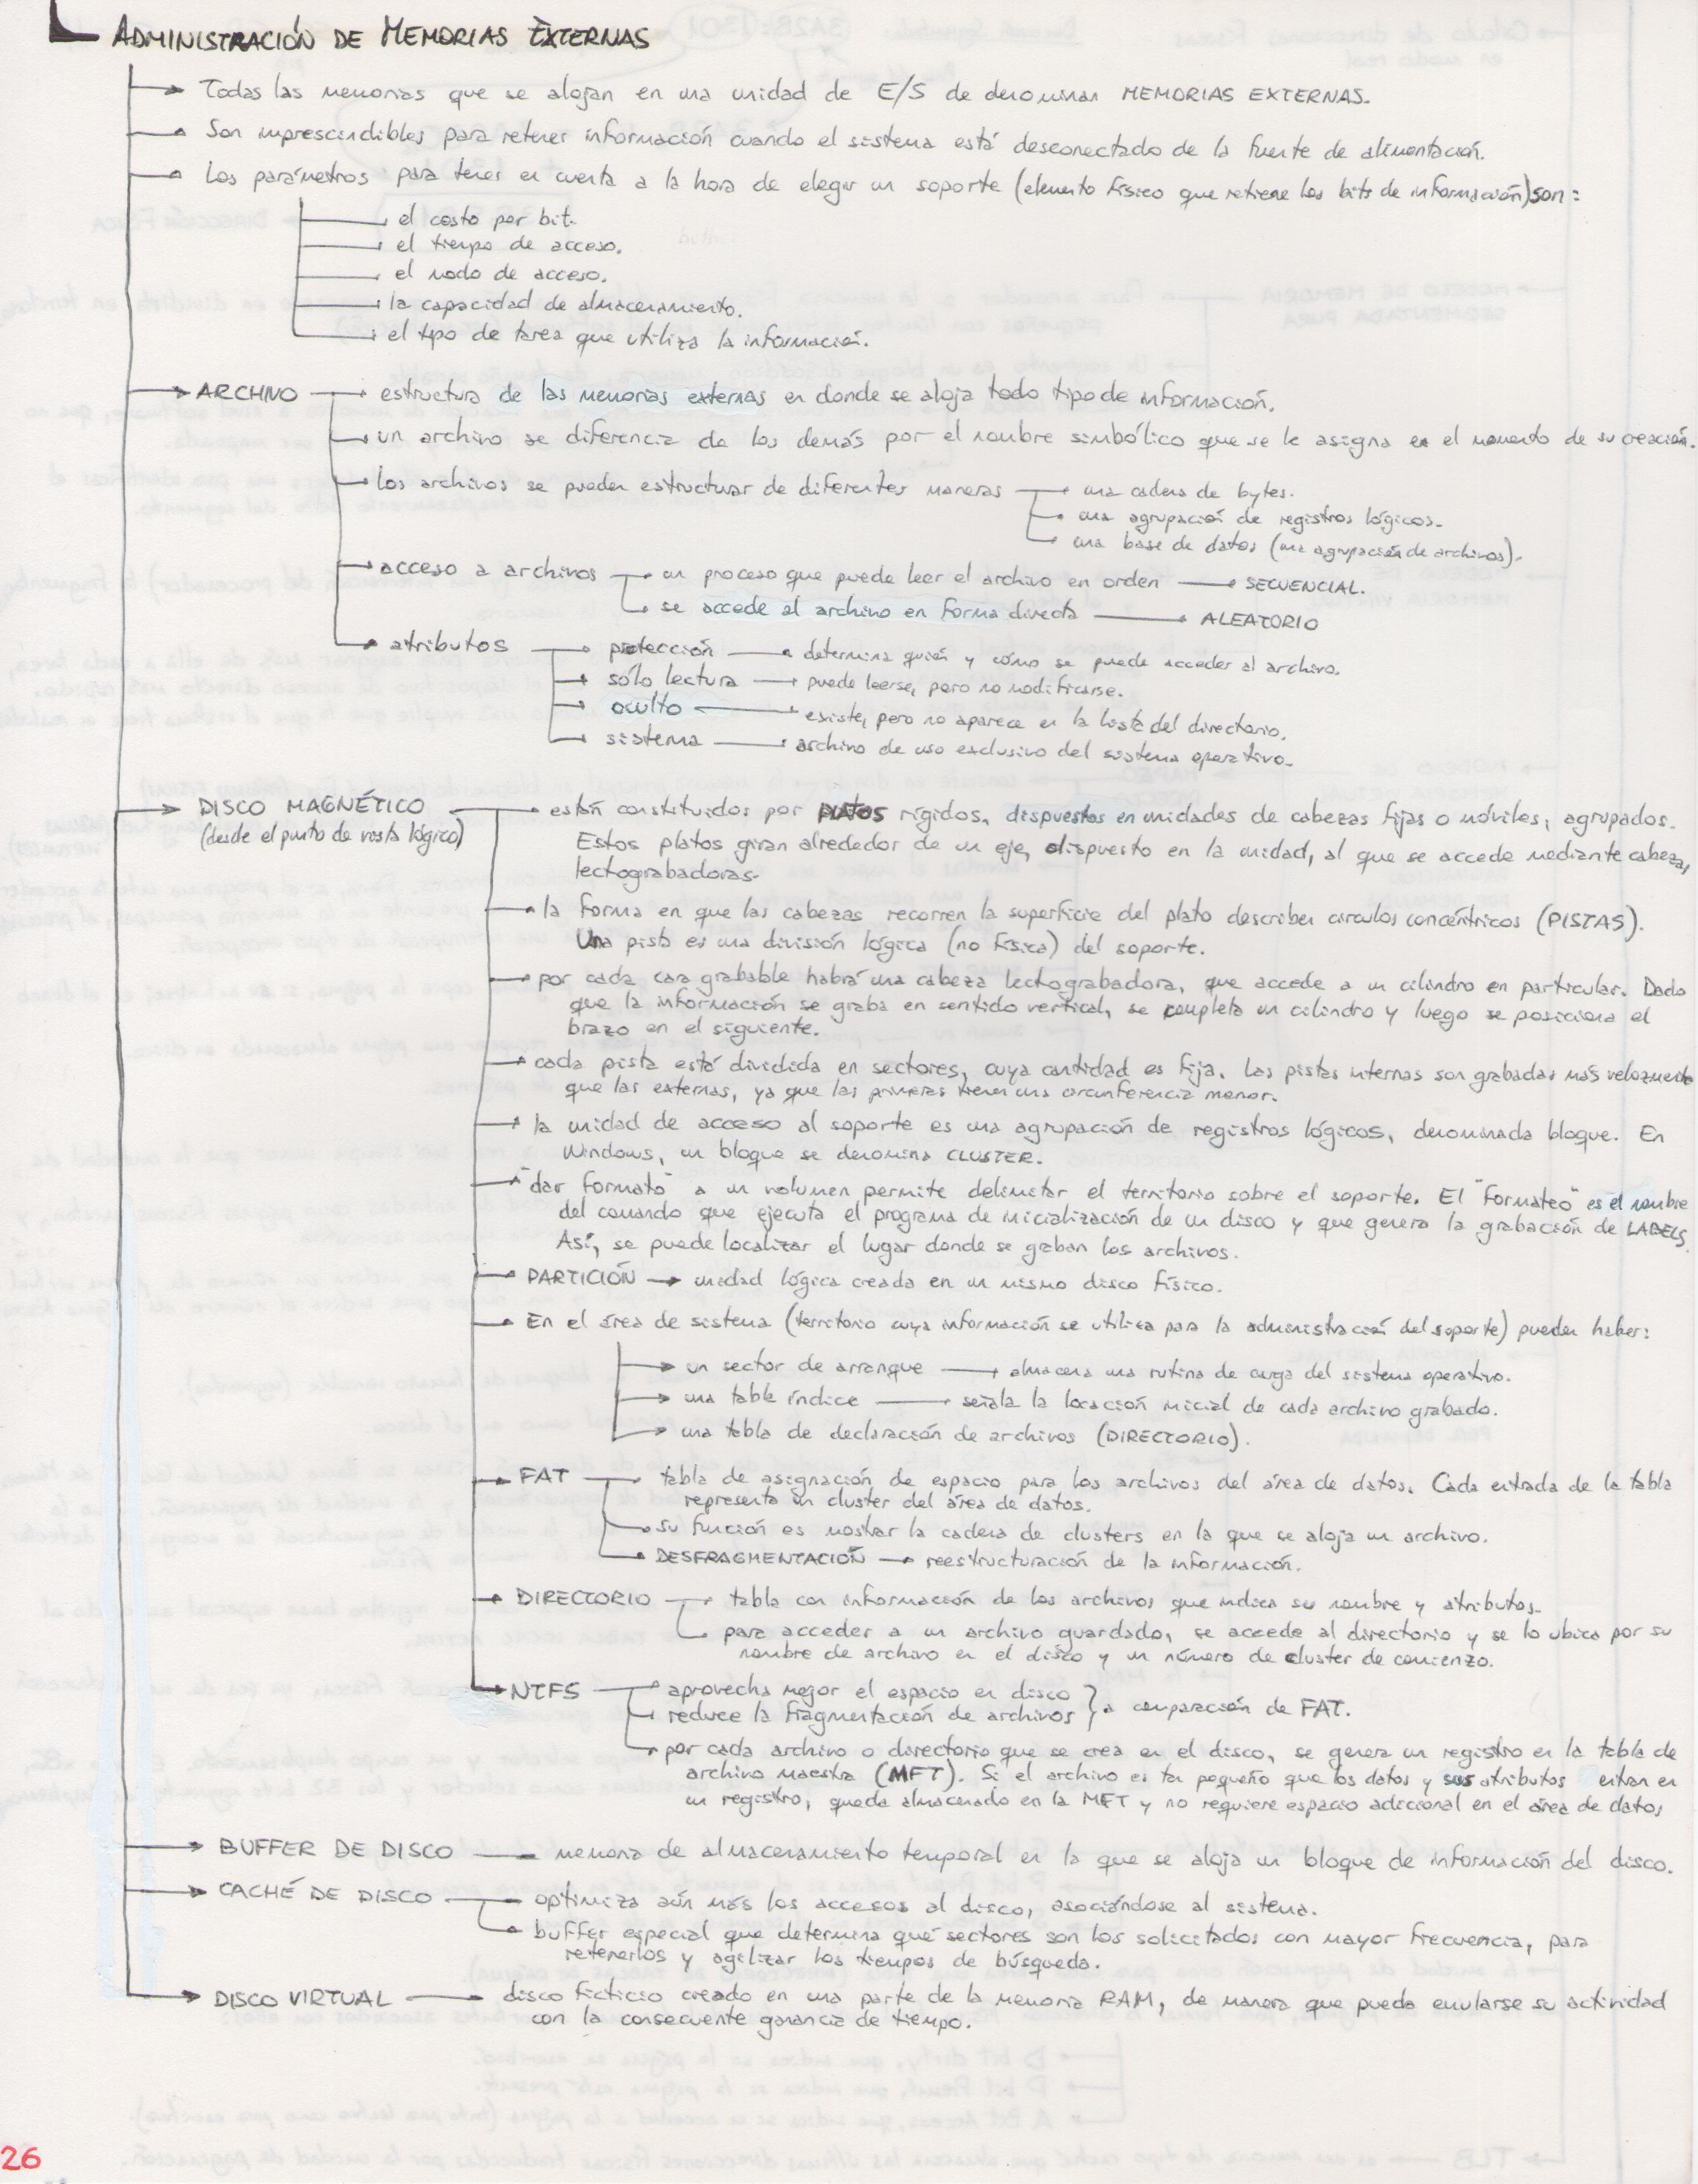 ADMINISTRACIÓN DE MEMORIAS EXTERNAS
Todas las memorias que se alojan en una unidad de E/S de denominan MEMORIAS EXTERNAS.
Son imprescindibles para retener información cuando el sistema está desconectado de la fuente de alimentación.
Los parámetros para tener en cuenta a la hora de elegir un soporte (elemento físico que retiene los bits de información) son:
el costo por bit.
el tiempo de acceso.
el modo de acceso.
la capacidad de almacenamiento.
el tipo de tarea que utiliza la información.
ARCHIVO → estructura de las memorias externas en donde se aloja todo tipo de información.
un archivo se diferencia de los demás por el nombre simbólico que se le asigna en el momento de su creación.
los archivos se pueden estructurar de diferentes maneras → una cadena de bytes.
una agrupación de registros lógicos.
una base de datos (una agrupación de archivos).
acceso a archivos → un proceso que puede leer el archivo en orden → SECUENCIAL.
se accede al archivo en forma directa → ALEATORIO
atributos → protección → determina quién y cómo se puede acceder al archivo.
sólo lectura → puede leerse, pero no modificarse.
oculto → existe, pero no aparece en la lista del directorio.
sistema → archivo de uso exclusivo del sistema operativo.
DISCO MAGNÉTICO → están constituidos por PLATOS rígidos, dispuestos en unidades de cabezas fijas o móviles, agrupados.
(desde el punto de vista lógico) Estos platos giran alrededor de un eje, dispuesto en la unidad, al que se accede mediante cabezas
lectograbadoras.
la forma en que las cabezas recorren la superficie del plato describen círculos concéntricos (PISTAS).
Una pista es una división lógica (no física) del soporte.
por cada cara grabable habrá una cabeza lectograbadora, que accede a un cilindro en particular. Dado
que la información se graba en sentido vertical, se completa un cilindro y luego se posiciona el
brazo en el siguiente.
cada pista está dividida en sectores, cuya cantidad es fija. Las pistas internas son grabadas más velozmente
que las externas, ya que las primeras tienen una circunferencia menor.
la unidad de acceso al soporte es una agrupación de registros lógicos, denominada bloque. En
Windows, un bloque se denomina CLUSTER.
"dar formato" a un volumen permite delimitar el territorio sobre el soporte. El "formateo" es el nombre
del comando que ejecuta el programa de inicialización de un disco y que genera la grabación de LABELS.
Así, se puede localizar el lugar donde se graban los archivos.
PARTICIÓN → unidad lógica creada en un mismo disco físico.
En el área de sistema (territorio cuya información se utiliza para la administración del soporte) pueden haber:
un sector de arranque → almacena una rutina de carga del sistema operativo.
una table índice → señala la locación inicial de cada archivo grabado.
una tabla de declaración de archivos (DIRECTORIO).
FAT → tabla de asignación de espacio para los archivos del área de datos. Cada entrada de la tabla
representa un cluster del área de datos.
su función es mostrar la cadena de clusters en la que se aloja un archivo.
DESFRAGMENTACIÓN → reestructuración de la información.
DIRECTORIO → tabla con información de los archivos que indica su nombre y atributos.
para acceder a un archivo guardado, se accede al directorio y se lo ubica por su
nombre de archivo en el disco y un número de cluster de comienzo.
NTFS → aprovecha mejor el espacio en disco
reduce la fragmentación de archivos } a comparación de FAT.
por cada archivo o directorio que se crea en el disco, se genera un registro en la tabla de
archivo maestra (MFT). Si el archivo es tan pequeño que los datos y sus atributos entran en
un registro, queda almacenado en la MFT y no requiere espacio adicional en el área de datos
BUFFER DE DISCO → memoria de almacenamiento temporal en la que se aloja un bloque de información del disco.
CACHÉ DE DISCO → optimiza aún más los accesos al disco, asociándose al sistema.
buffer especial que determina qué sectores son los solicitados con mayor frecuencia, para
retenerlos y agilizar los tiempos de búsqueda.
DISCO VIRTUAL → disco ficticio creado en una parte de la memoria RAM, de manera que pueda emularse su actividad
con la consecuente ganancia de tiempo.
26